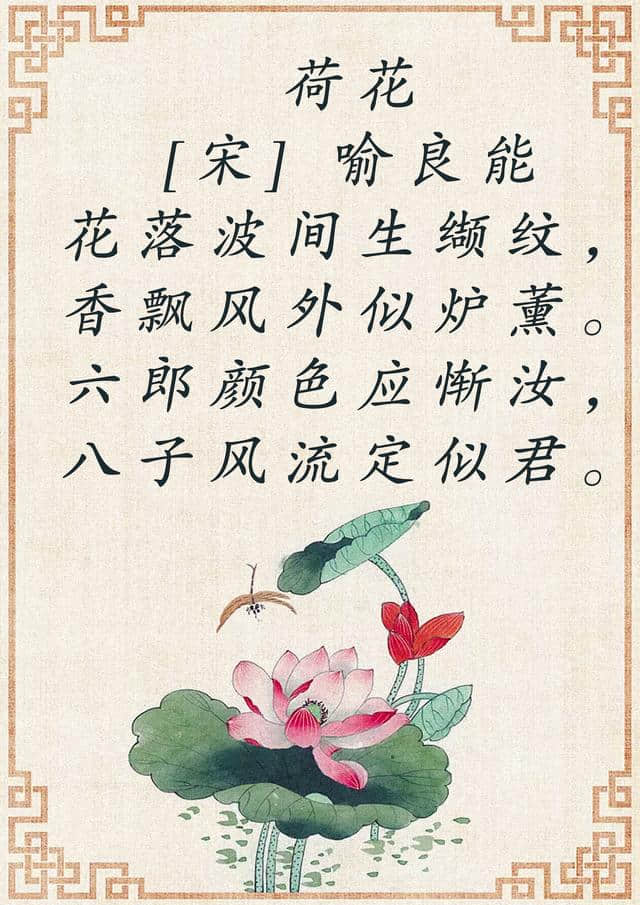 荷花
[宋] 喻良能
花落波间生缬纹，
香飘风外似炉薰。
六郎颜色应惭汝，
八子风流定似君。